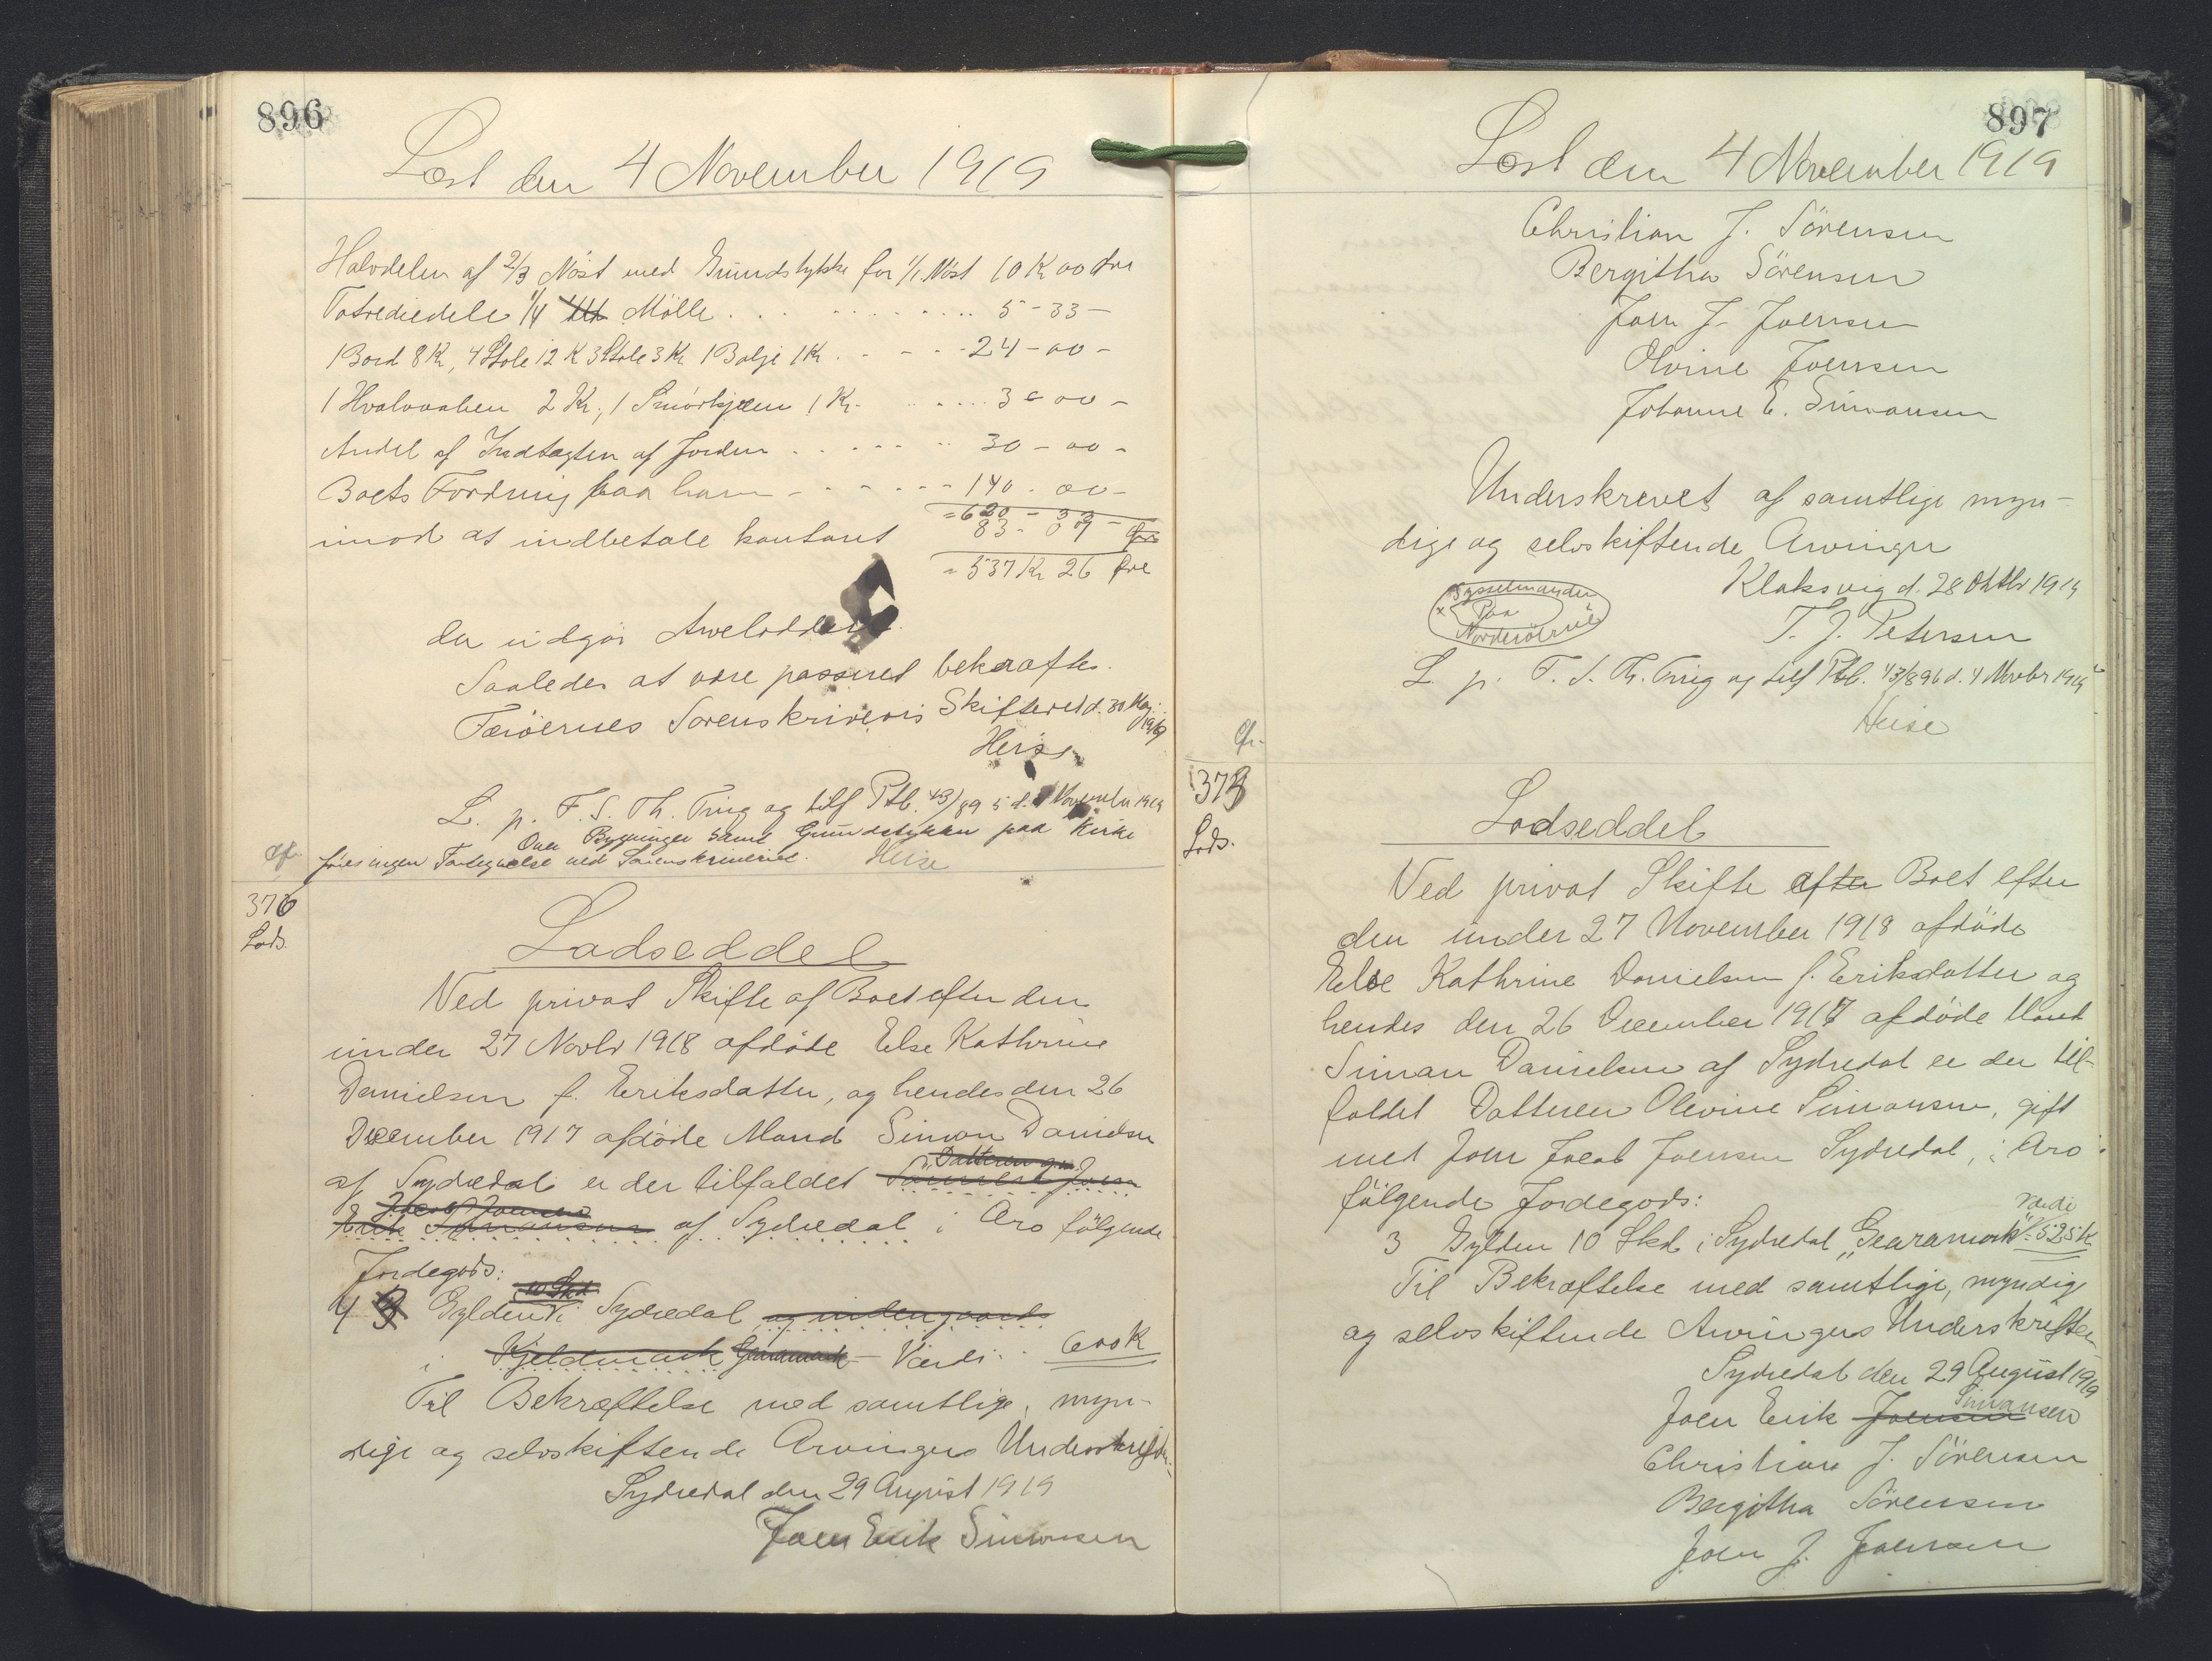 896
Læst den 4 November 1919
Halvdelen af 2/3 Nöst med Grundstykke for 1/1 Nöst 10 K 00 Øre
Totrediedele 1/4 Mölle . . . . . . . . . . . 5 - 33 -
1 Bord 8 Kr, 4 Stole 12 K 3 Stole 3 Kr 1 Balje 1 Kr. - - - - 24 - 00 -
1 Hvalvaaben 2 Kr., 1 Smörkjærn 1 Kr. . . . . . 3 - 00 -
Andel af Indtægten af Jorden . . . . . . . 30 - 00 -
Boets Fordring paa ham - - - - - - - 140 - 00 -
= 620 - 33 -
imod at indbetale kontant 83 - 07 - Øre
= 537 Kr 26 Øre
der udgör Arvelodden.
Saaledes at være passeret bekræftes.
Færöernes Sorenskriveris Skifteret d. 30 Maj 1919
Heise
L. p. F. S. Th. Ting og tilf Ptb. 43/895 d. 4 November 1919
Over Bygninger samt Grundstykker paa Kirke
cfr. föres ingen Fortegnelse ved Sorenskriveriet. Heise
376
Lods.
Lodseddel
Ved privat Skifte af Boet efter den
under 27 Novbr 1918 afdöde Else Kathrine
Danielsen f. Eriksdatter, og hendes den 26
December 1917 afdöde Mand Simon Danielsen
Datteren gm.
af Sydredal er der tilfaldet Sönnen Joen
Jacob Joensen
Erik Simonsen af Sydredal i Aro fölgende
Jordegods:
10 Skd
4 3 Gylden i Sydredal og indengaards
i Kjeldmark Gearamork - Værdi . . 600 K
Til Bekræftelse med samtlige, myn-
dige og selvskiftende Arvingers Underskrifter.
Sydredal den 29 August 1919
Joen Erik Simonsen
897
Læst den 4 November 1919
Christian J. Sörensen
Bergitha Sörensen
Joen J. Joensen
Olvine Joensen
Johanne E. Simonsen
Underskrevet af samtlige myn-
dige og selvskiftende Arvinger
Klaksvig d. 28 Oktbr 1919
Sysselmanden
Paa
Norderöerne
T. J. Petersen
L. p. F. S. Th. Ting og tilf Ptb. 43/896 d. 4 Novbr 1919
Heise
cfr.
377
Lods.
Lodseddel
Ved privat Skifte efter Boet efter
den under 27 November 1918 afdöde
Else Kathrine Danielsen f. Eriksdatter og
hendes den 26 December 1917 afdöde Mand
Simon Danielsen af Sydredal er der til-
faldet Datteren Olevine Simonsen, gift
med Joen Jacob Joensen Sydredal, i Aro
fölgende Jordegods:
Værdi
3 Gylden 10 Skd i Sydredal "Gearamork" : 525 K
Til Bekræftelse med samtlige, myndige
og selvskiftende Arvingers Underskrifter
Sydredal den 29 August 1919
Simonsen
Joen Erik Joensen
Christian J. Sörensen
Bergitha Sörensen
Joen J. Joensen